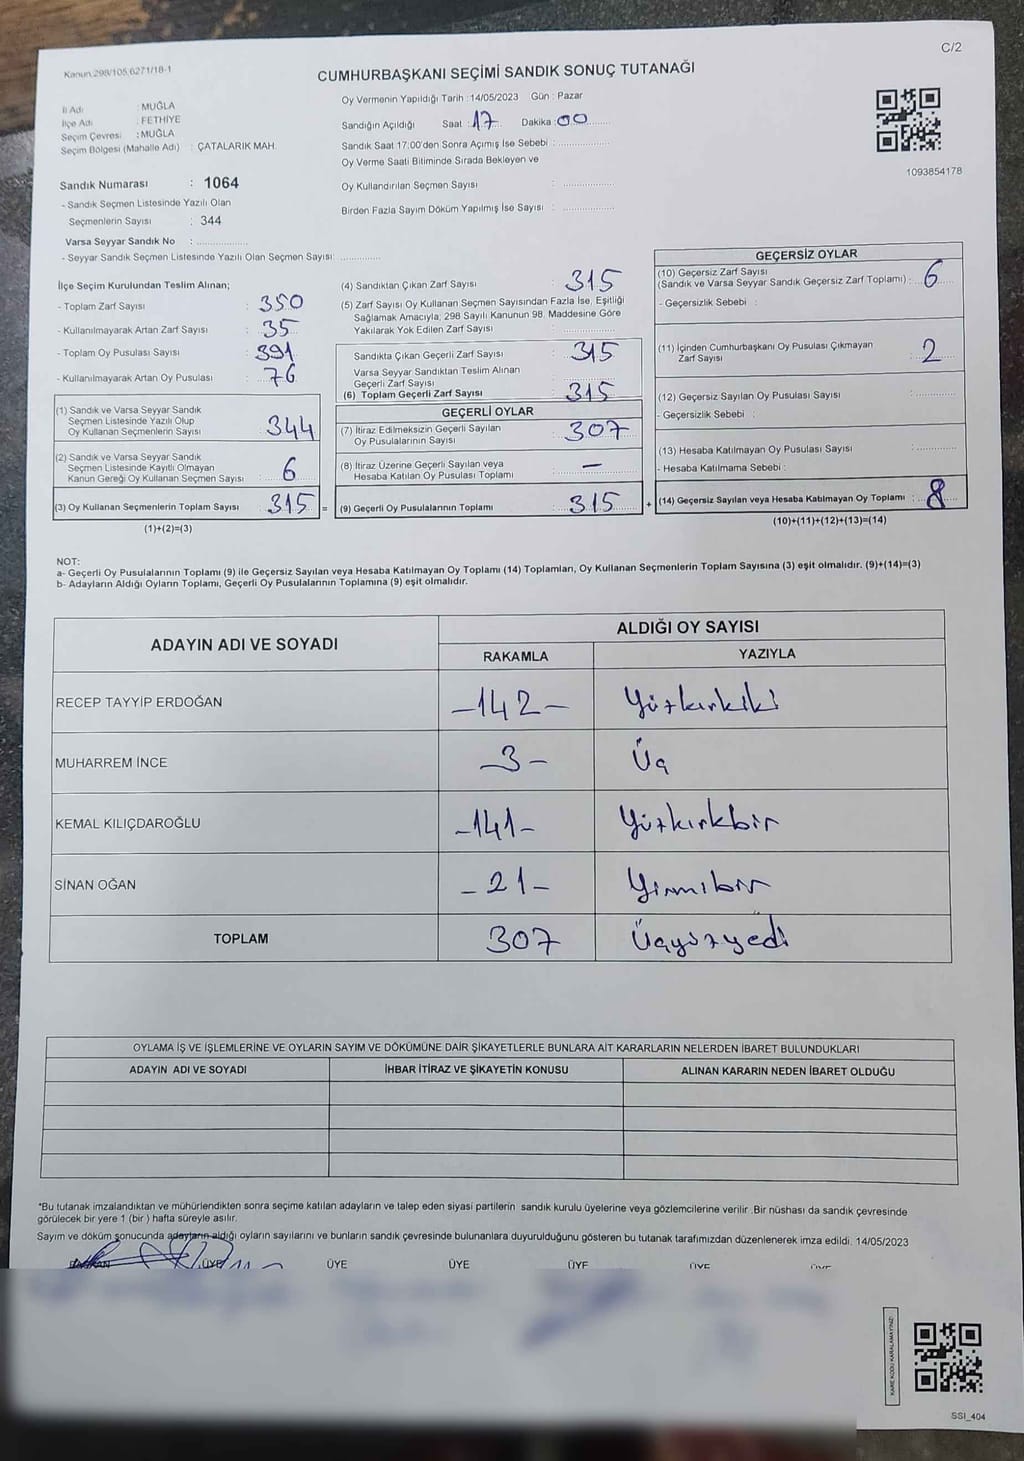 C/2
Kanun:298/105,6271/18-1
CUMHURBAŞKANI SEÇİMİ SANDIK SONUÇ TUTANAĞI
İl Adı : MUĞLA
İlçe Adı : FETHİYE
Seçim Çevresi : MUĞLA
Seçim Bölgesi (Mahalle Adı) : ÇATALARIK MAH.
Oy Vermenin Yapıldığı Tarih :14/05/2023 Gün : Pazar
Sandığın Açıldığı Saat :17 Dakika :00
Sandık Saat 17:00'den Sonra Açımış İse Sebebi :
Oy Verme Saati Bitiminde Sırada Bekleyen ve
Oy Kullandırılan Seçmen Sayısı :
Birden Fazla Sayım Döküm Yapılmış İse Sayısı :
1093854178
Sandık Numarası : 1064
- Sandık Seçmen Listesinde Yazılı Olan
Seçmenlerin Sayısı : 344
Varsa Seyyar Sandık No :
- Seyyar Sandık Seçmen Listesinde Yazılı Olan Seçmen Sayısı:
İlçe Seçim Kurulundan Teslim Alınan;
- Toplam Zarf Sayısı : 350
- Kullanılmayarak Artan Zarf Sayısı : 35
- Toplam Oy Pusulası Sayısı : 391
- Kullanılmayarak Artan Oy Pusulası : 76
(1) Sandık ve Varsa Seyyar Sandık
Seçmen Listesinde Yazılı Olup
Oy Kullanan Seçmenlerin Sayısı : 344
(2) Sandık ve Varsa Seyyar Sandık
Seçmen Listesinde Kayıtlı Olmayan
Kanun Gereği Oy Kullanan Seçmen Sayısı : 6
(3) Oy Kullanan Seçmenlerin Toplam Sayısı : 315 =
(1)+(2)=(3)
(4) Sandıktan Çıkan Zarf Sayısı : 315
(5) Zarf Sayısı Oy Kullanan Seçmen Sayısından Fazla İse, Eşitliği
Sağlamak Amacıyla, 298 Sayılı Kanunun 98. Maddesine Göre
Yakılarak Yok Edilen Zarf Sayısı :
Sandıkta Çıkan Geçerli Zarf Sayısı : 315
Varsa Seyyar Sandıktan Teslim Alınan
Geçerli Zarf Sayısı :
(6) Toplam Geçerli Zarf Sayısı : 315
GEÇERLİ OYLAR
(7) İtiraz Edilmeksizin Geçerli Sayılan
Oy Pusulalarının Sayısı : 307
(8) İtiraz Üzerine Geçerli Sayılan veya
Hesaba Katılan Oy Pusulası Toplamı : —
(9) Geçerli Oy Pusulalarının Toplamı : 315 +
GEÇERSİZ OYLAR
(10) Geçersiz Zarf Sayısı
(Sandık ve Varsa Seyyar Sandık Geçersiz Zarf Toplamı) : 6
- Geçersizlik Sebebi :
(11) İçinden Cumhurbaşkanı Oy Pusulası Çıkmayan
Zarf Sayısı : 2
(12) Geçersiz Sayılan Oy Pusulası Sayısı :
- Geçersizlik Sebebi :
(13) Hesaba Katılmayan Oy Pusulası Sayısı :
- Hesaba Katılmama Sebebi :
(14) Geçersiz Sayılan veya Hesaba Katılmayan Oy Toplamı : 8
(10)+(11)+(12)+(13)=(14)
NOT:
a- Geçerli Oy Pusulalarının Toplamı (9) ile Geçersiz Sayılan veya Hesaba Katılmayan Oy Toplamı (14) Toplamları, Oy Kullanan Seçmenlerin Toplam Sayısına (3) eşit olmalıdır. (9)+(14)=(3)
b- Adayların Aldığı Oyların Toplamı, Geçerli Oy Pusulalarının Toplamına (9) eşit olmalıdır.
ADAYIN ADI VE SOYADI
ALDIĞI OY SAYISI
RAKAMLA YAZIYLA
RECEP TAYYİP ERDOĞAN -142- Yüzkırkiki
MUHARREM İNCE -3- Üç
KEMAL KILIÇDAROĞLU -141- Yüzkırkbir
SİNAN OĞAN -21- Yirmibir
TOPLAM 307 Üçyüzyedi
OYLAMA İŞ VE İŞLEMLERİNE VE OYLARIN SAYIM VE DÖKÜMÜNE DAİR ŞİKAYETLERLE BUNLARA AİT KARARLARIN NELERDEN İBARET BULUNDUKLARI
ADAYIN ADI VE SOYADI İHBAR İTİRAZ VE ŞİKAYETİN KONUSU ALINAN KARARIN NEDEN İBARET OLDUĞU
*Bu tutanak imzalandıktan ve mühürlendikten sonra seçime katılan adayların ve talep eden siyasi partilerin sandık kurulu üyelerine veya gözlemcilerine verilir .Bir nüshası da sandık çevresinde
görülecek bir yere 1 (bir ) hafta süreyle asılır.
Sayım ve döküm sonucunda adayların aldığı oyların sayılarını ve bunların sandık çevresinde bulunanlara duyurulduğunu gösteren bu tutanak tarafımızdan düzenlenerek imza edildi. 14/05/2023
BAŞKAN ÜYE ÜYE ÜYE ÜYE ÜYE ÜYE
KARE KODU KARALAMAYINIZ!
SSI_404